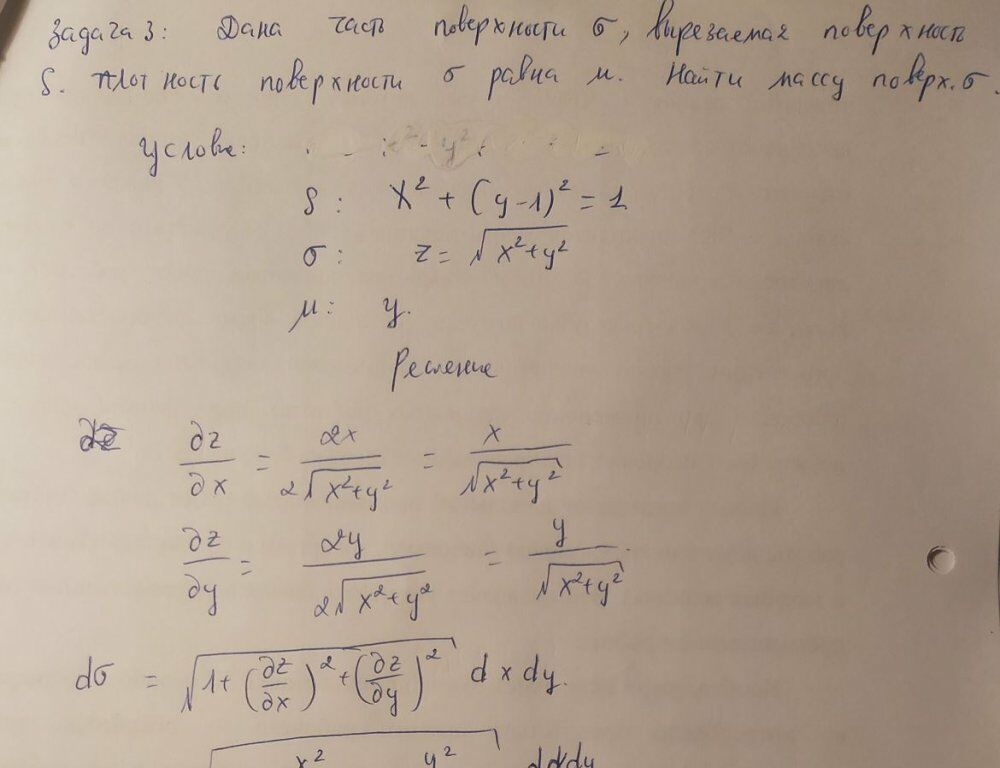 Задача 3: Дана часть поверхности σ, вырезаемая поверхность
S. Плотность поверхности σ равна μ. Найти массу поверх. σ.
Условие:
S: x² + (y-1)² = 1
σ: z = √(x²+y²)
μ: y.
Решение
∂z/∂x = 2x/(2√(x²+y²)) = x/√(x²+y²)
∂z/∂y = 2y/(2√(x²+y²)) = y/√(x²+y²)
dσ = √(1+(∂z/∂x)²+(∂z/∂y)²) dxdy.
x² y² dxdy